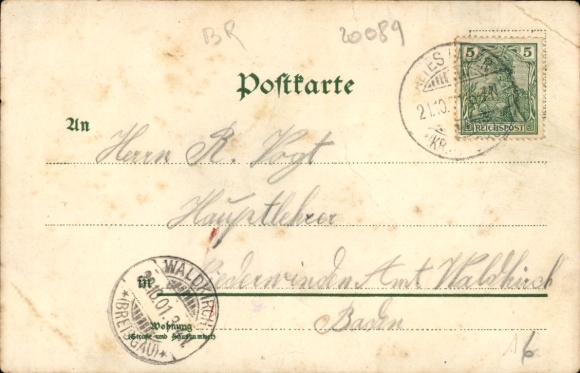 BR 20089
5 5
REICHSPOST
21.10.
Postkarte
An
Herrn R. Vogt
Hauptlehrer
in Niederwinden Amt Waldkirch
Baden
Wohnung
(Straße und Hausnummer)
WALDKIRCH
22.10.01.
*(BREISGAU)*
16